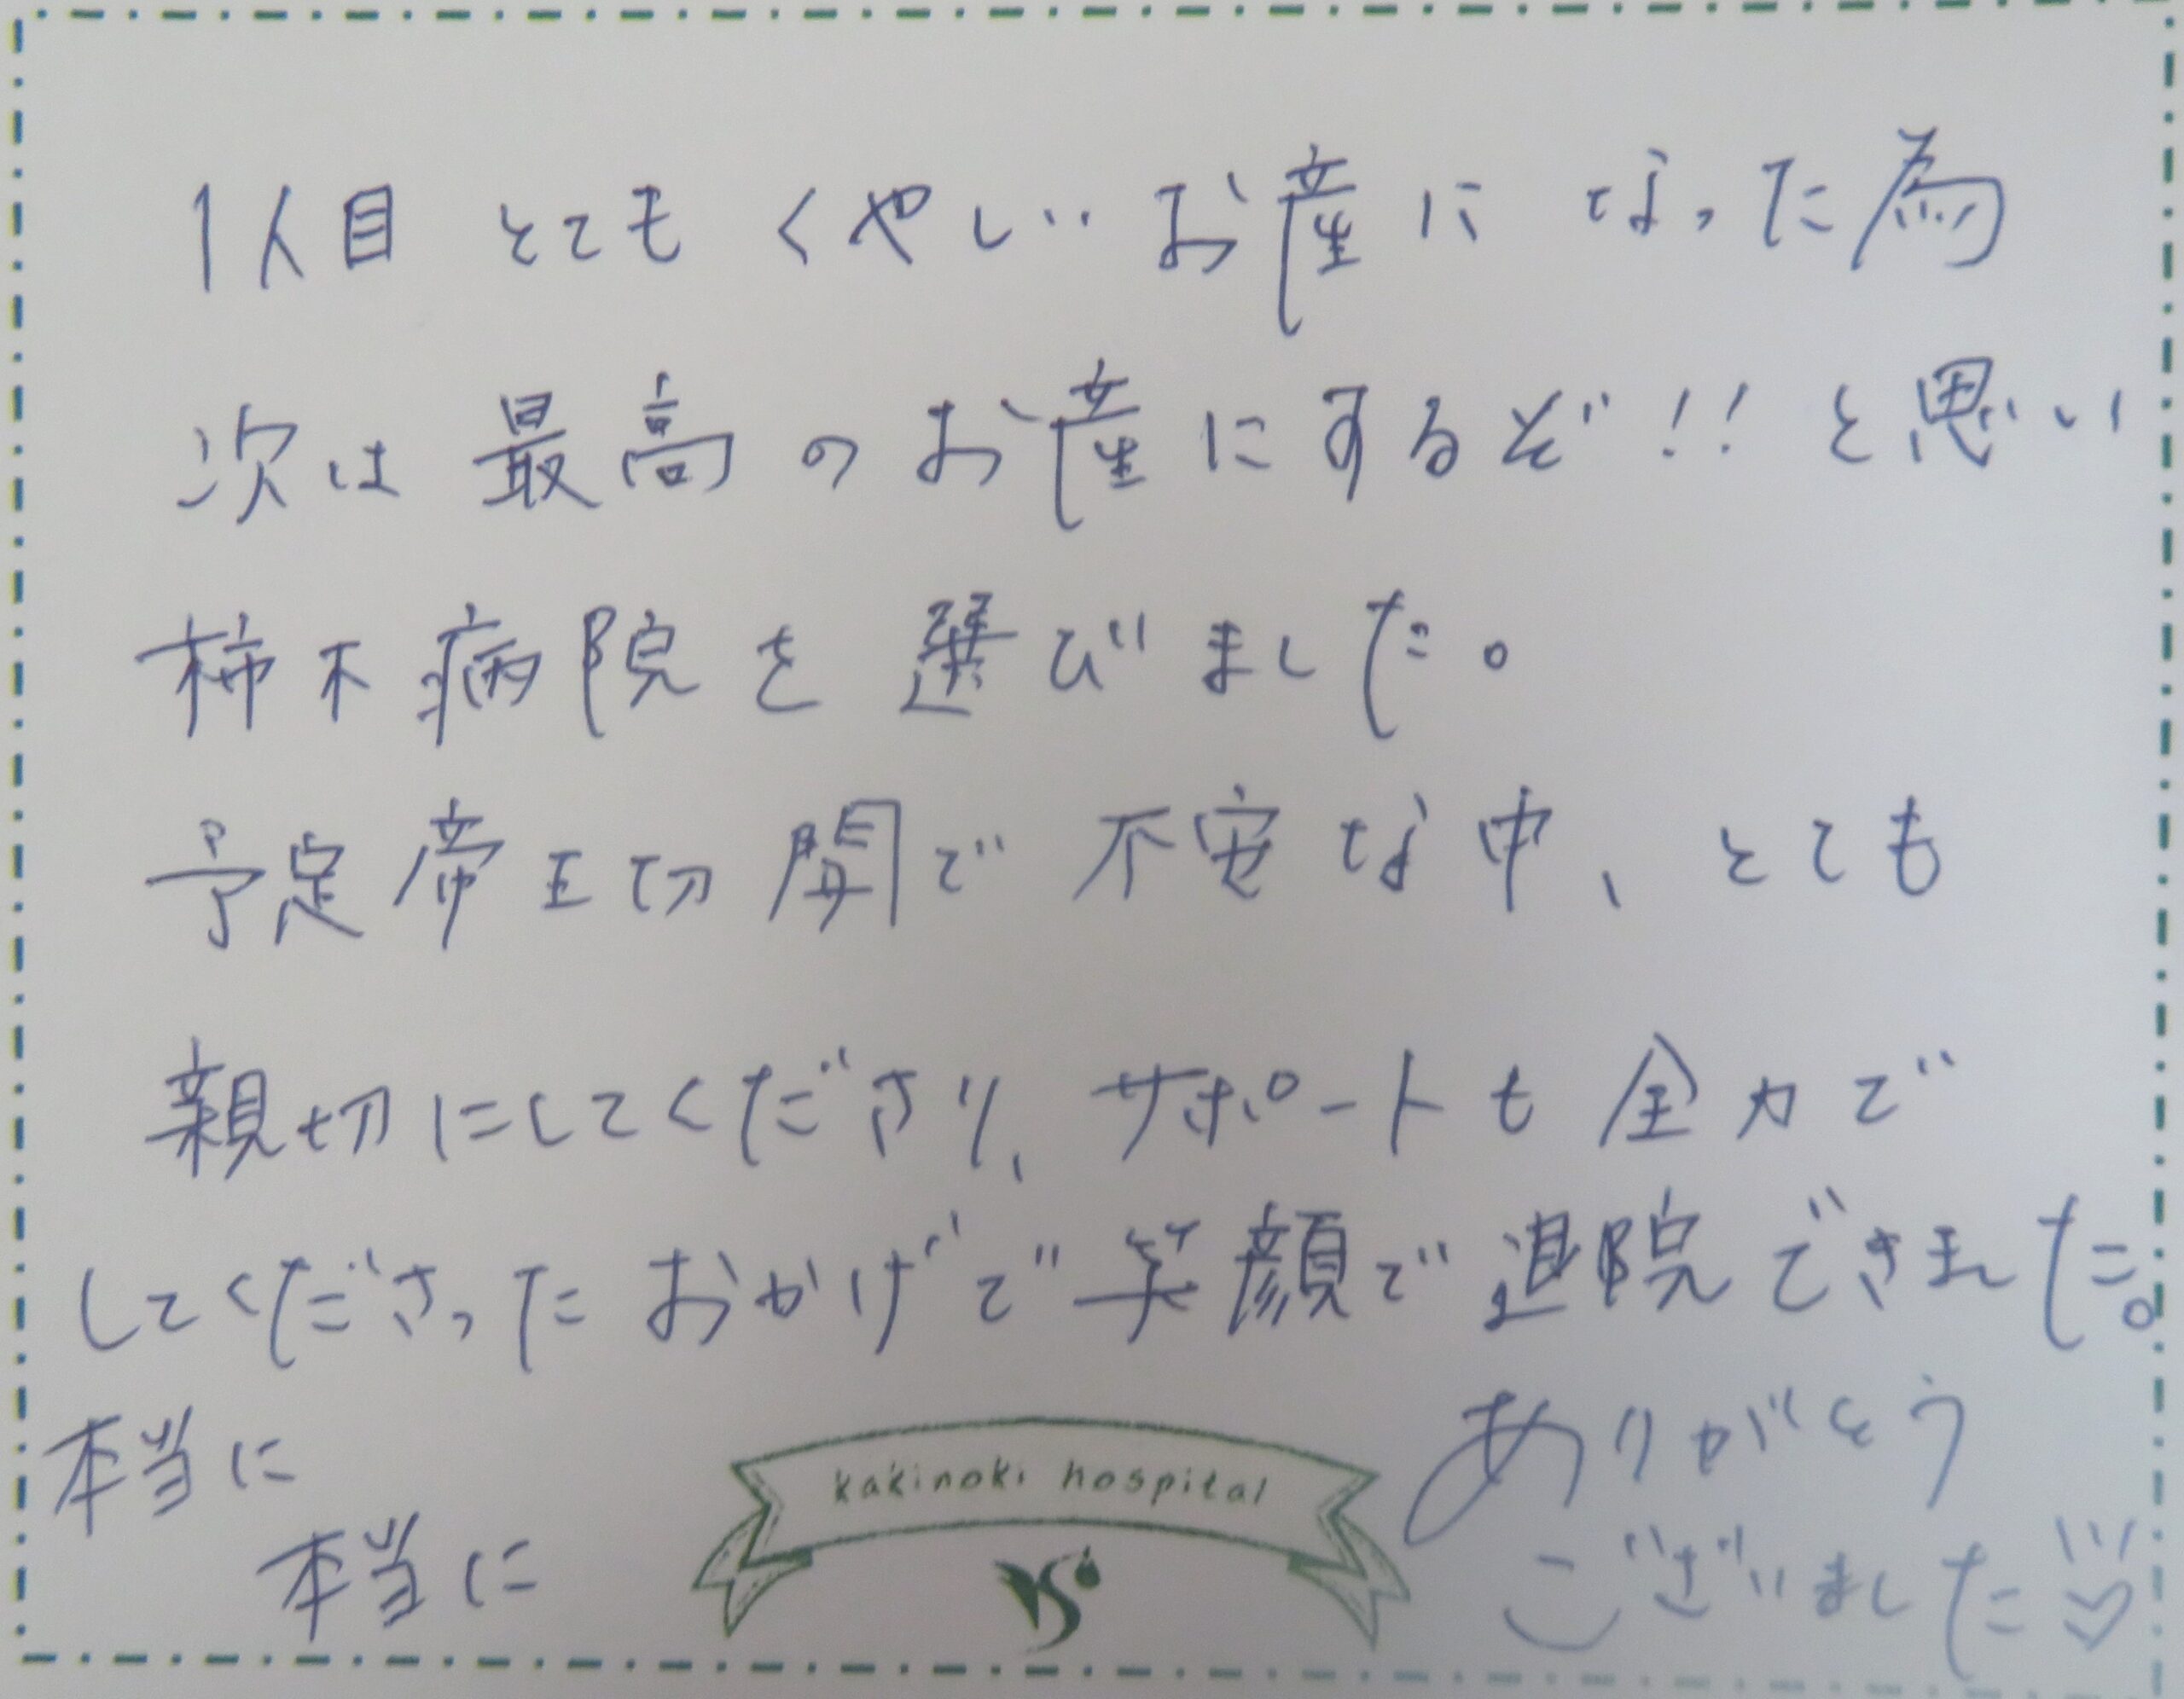 1人目 とてもくやしいお産に なった為
次は最高のお産にするぞ!!と思い
柿木病院を選びました。
予定帝王切開で不安な中、とても
親切にしてくださり、サポートも全力で
してくださったおかげで笑顔で退院できました。
本当に
本当に
kakinoki hospital
ありがとう
ございました